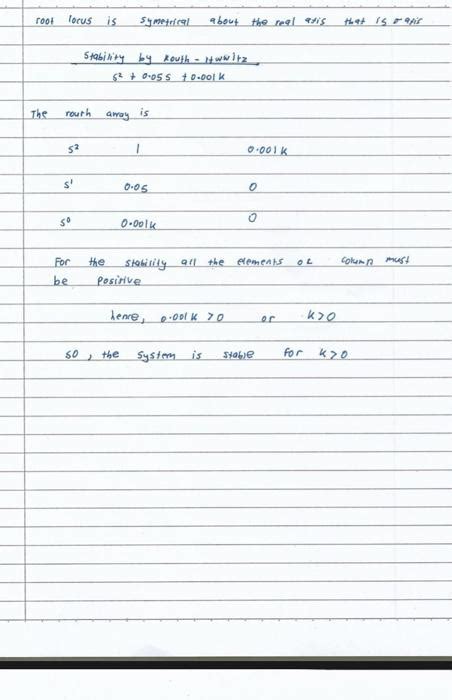 root locus is symetrical about the real axis that is σ axis
Stability by Routh-Hwwitz
s² + 0.05s + 0.001k
The routh array is
s² 1 0.001k
s¹ 0.05 0
s⁰ 0.001k 0
For the stability all the elements of column must
be positive
hence, 0.001k >0 or k>0
so, the system is stable for k>0